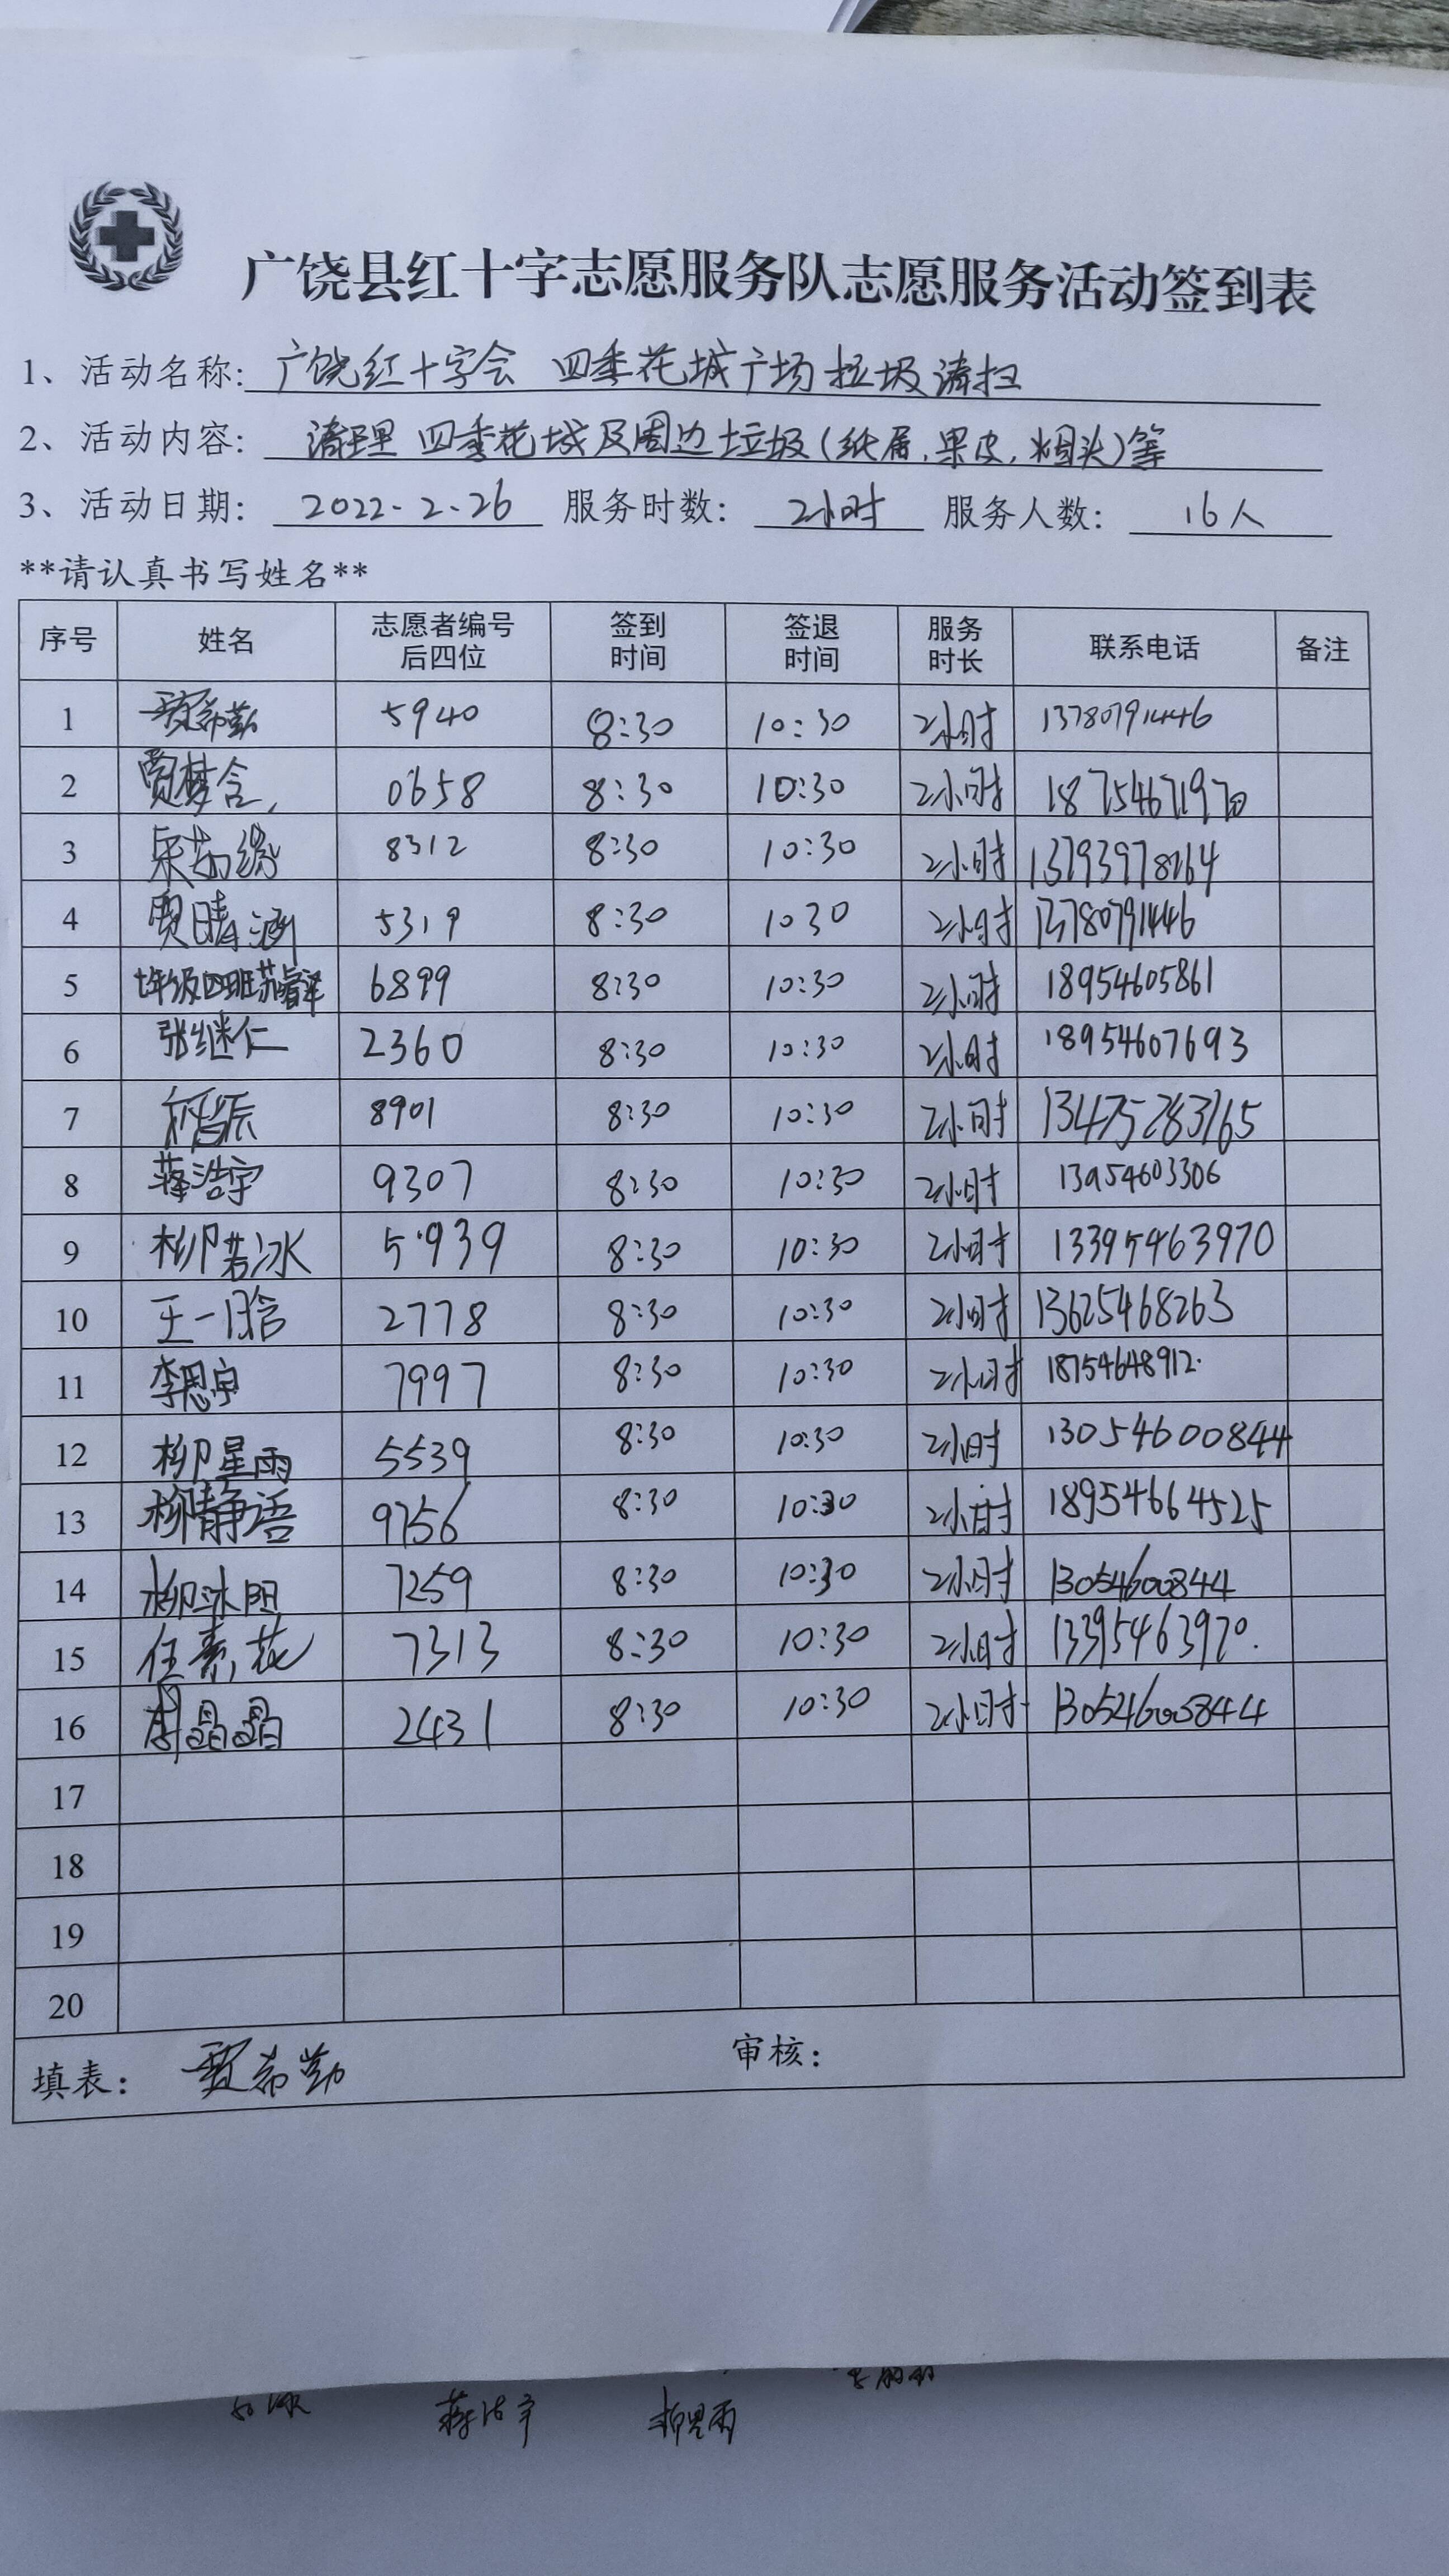 广饶县红十字志愿服务队志愿服务活动签到表
1、活动名称: 广饶红十字会 四季花城广场垃圾清扫
2、活动内容: 清理四季花城及周边垃圾(纸屑,果皮,烟头)等
3、活动日期: 2022.2.26 服务时数: 2小时 服务人数: 16人
**请认真书写姓名**
序号 姓名 志愿者编号后四位 签到时间 签退时间 服务时长 联系电话 备注
1 贾希勤 5940 8:30 10:30 2小时 13780791446
2 贾梦含 0658 8:30 10:30 2小时
3 8312 8:30 10:30 2小时 13793978264
4 贾晴涵 5319 8:30 10 30 2小时 13780791446
5 七年级四班 6899 8:30 10:30 2小时 18954605861
6 张继仁 2360 8:30 10:30 2小时 18954607693
7 8901 8:30 10:30 2小时 13475283765
8 蒋浩宇 9307 8:30 10:30 2小时 13954603306
9 柳若冰 5939 8:30 10:30 2小时 13395463970
10 王一晗 2778 8:30 10:30 2小时 13625468263
11 李思宇 7997 8:30 10:30 2小时 18754648912
12 柳星雨 5539 8:30 10:30 2小时 13054600844
13 柳静语 9756 8:30 10:30 2小时 18954664525
14 柳沐阳 7259 8:30 10:30 2小时 13054600844
15 任素花 7313 8:30 10:30 2小时 13395463970
16 2431 8:30 10:30 2小时
17
18
19
20
填表: 贾希勤 审核:
蒋浩宇 柳星雨